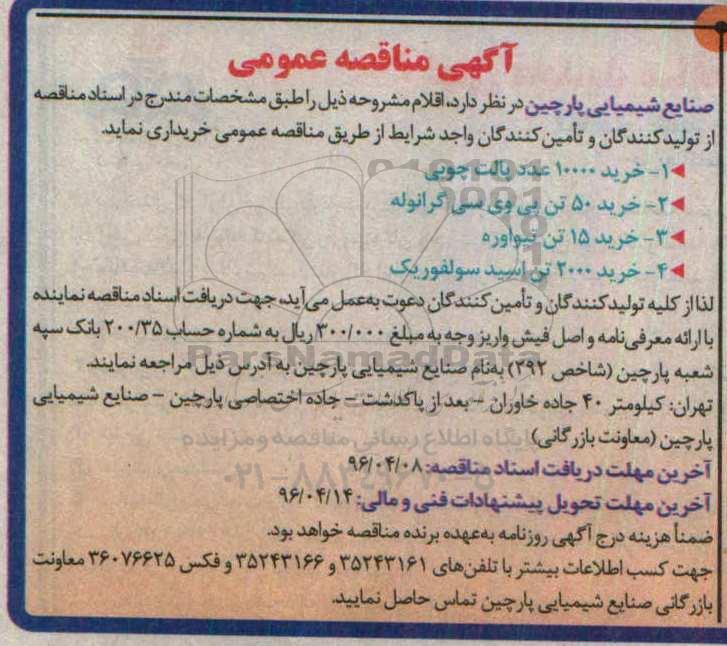 آگهی مناقصه عمومی
صنایع شیمیایی پارچین در نظر دارد، اقلام مشروحه ذیل را طبق مشخصات مندرج در اسناد مناقصه
از تولیدکنندگان و تأمین‌کنندگان واجد شرایط از طریق مناقصه عمومی خریداری نماید.
۱- خرید ۱۰۰۰۰ عدد پالت چوبی
۲- خرید ۵۰ تن پی وی سی گرانوله
۳- خرید ۱۵ تن تیواوره
۴- خرید ۲۰۰۰ تن اسید سولفوریک
لذا از کلیه تولیدکنندگان و تأمین‌کنندگان دعوت به‌عمل می‌آید، جهت دریافت اسناد مناقصه نماینده
با ارائه معرفی‌نامه و اصل فیش واریز وجه به مبلغ ۳۰۰/۰۰۰ ریال به شماره حساب ۲۰۰/۳۵ بانک سپه
شعبه پارچین (شاخص ۳۹۲) به‌نام صنایع شیمیایی پارچین به آدرس ذیل مراجعه نمایند.
ParsNamadData
تهران: کیلومتر ۴۰ جاده خاوران - بعد از پاکدشت - جاده اختصاصی پارچین - صنایع شیمیایی
پارچین (معاونت بازرگانی)
پایگاه اطلاع رسانی مناقصه و مزایده
آخرین مهلت دریافت اسناد مناقصه: ۹۶/۰۴/۰۸
آخرین مهلت تحویل پیشنهادات فنی و مالی: ۹۶/۰۴/۱۴
ضمناً هزینه درج آگهی روزنامه به‌عهده برنده مناقصه خواهد بود.
جهت کسب اطلاعات بیشتر با تلفن‌های ۳۵۲۴۳۱۶۱ و ۳۵۲۴۳۱۶۶ و فکس ۳۶۰۷۶۶۲۵ معاونت
بازرگانی صنایع شیمیایی پارچین تماس حاصل نمایید.